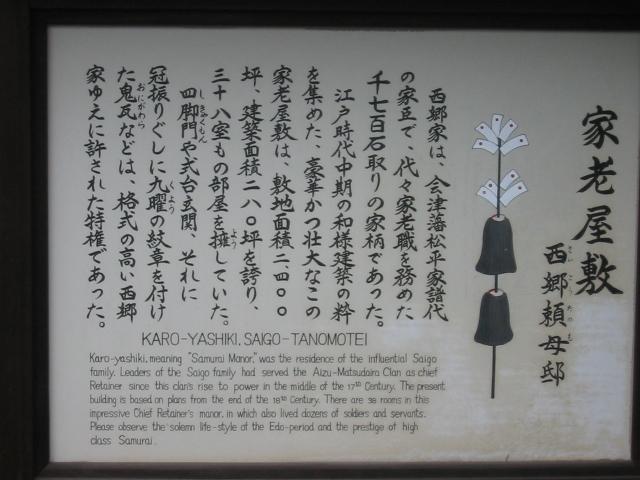 家老屋敷
西郷頼母邸
さいごうたのも
西郷家は、会津藩松平家譜代
の家臣で、代々家老職を務めた
千七百石取りの家柄であった。
江戸時代中期の和様建築の粋
を集めた、豪華かつ壮大なこの
家老屋敷は、敷地面積二、四〇〇
坪、建築面積二八〇坪を誇り、
三十八室もの部屋を擁していた。
よう
四脚門や式台玄関、それに
しきゃくもん
冠振りぐしに九曜の紋章を付け
くよう
た鬼瓦などは、格式の高い西郷
おにがわら
家ゆえに許された特権であった。
KARO-YASHIKI, SAIGO-TANOMOTEI
Karo-yashiki, meaning "Samurai Manor," was the residence of the influential Saigo
family. Leaders of the Saigo family had served the Aizu-Matsudaira Clan as chief
Retainer since this clan's rise to power in the middle of the 17th Century. The present
building is based on plans from the end of the 18th Century. There are 38 rooms in this
impressive Chief Retainer's manor, in which also lived dozens of soldiers and servants.
Please observe the solemn life-style of the Edo-period and the prestige of high
class Samurai.